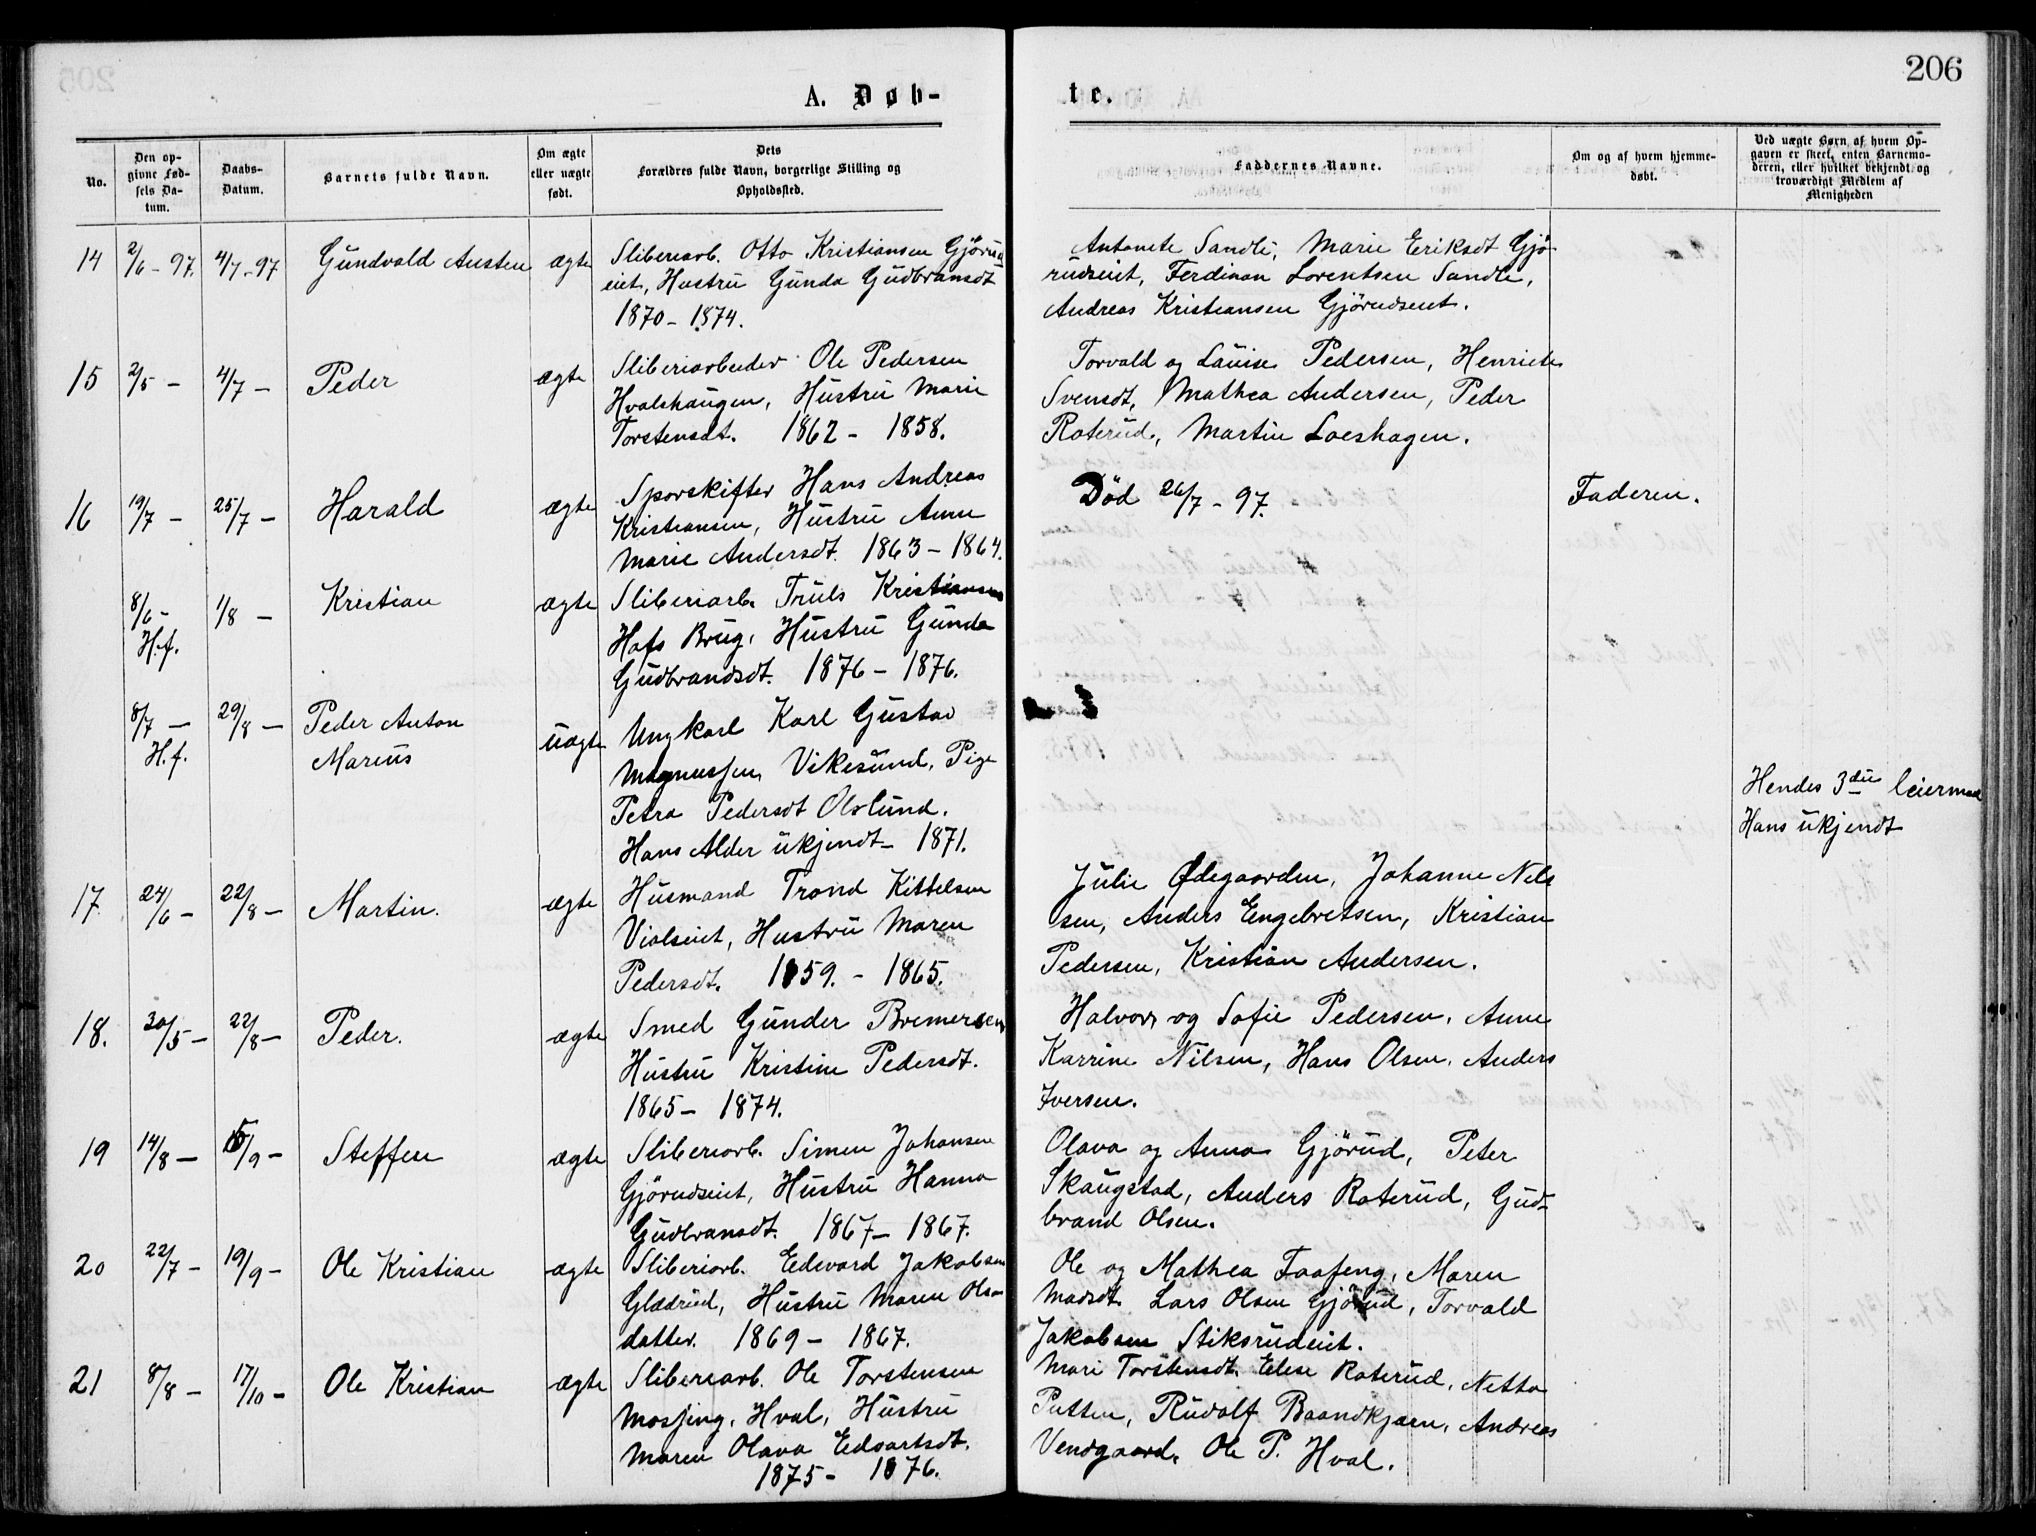 206
A. Døb-
te.
No.
Den op-
givne Fød-
sels Da-
tum.
Daabs-
Datum.
Barnets fulde Navn.
Om ægte
eller uægte
født.
Dets
Forældres fulde Navn, borgerlige Stilling og
Opholdssted.
Faddernes Navne.
Om og af hvem hjemme-
døbt.
Ved uægte Børn af hvem Op-
gaven er skeet, enten Barnemo-
deren, eller hvilket bekjendt og
troværdigt Medlem af
Menigheden
14 2/6 - 97. 4/7 - 97 Gundvald Austen ægte Sliberiarb. Otto Kristiansen Gjörud
eiet, Hustru Gunda Gudbransdt
1870 - 1874.
Antonete Sandli, Marie Eriksdt Gjö
rudseiet, Ferdinan Lorentsen Sandli,
Andreas Kristiansen Gjörudseiet.
15 2/5 - 4/7 - Peder ægte Sliberiarbeider Ole Pedersen
Hvalshaugen, Hustru Marie
Torstensdt. 1862 - 1858.
Torvald og Lauise Pedersen, Henriete
Svensdt, Mathea Andersen, Peder
Roterud, Martin Loeshagen.
16 19/7 - 25/7 - Harald ægte Sporskifter Hans Andreas
Kristiansen, Hustru Anne
Marie Andersdt. 1863 - 1864.
Död 26/7 - 97.
Faderen.
8/6 - 1/8 - Kristian ægte Sliberiarb. Truls Kristiansen
H.f. Hofs Brug, Hustru Gunda
Gudbrandsdt. 1876 - 1876.
8/7 - 29/8 - Peder Anton uægte Ungkarl Karl Gustav
H.f. Marius Magnussen, Vikesund, Pige
Petra Pedersdt Olslund.
Hans Alder ukjendt - 1871.
Hendes 3die leiermaal
Hans ukjendt
17 24/6 - 22/8 - Martin. ægte Husmand Trond Kittelsen
Violseiet, Hustru Maren
Pedersdt. 1859. - 1865.
Julie Ødegaarden, Johanne Niel
sen, Anders Engebretsen, Kristian
Pedersen, Kristian Andersen.
18. 30/5 - 22/8 - Peder. ægte Smed Gunder Bremersen
Hustru Kristine Pedersdt.
1865 - 1874.
Halvor og Sofie Pedersen, Anne
Karrine Nilsen, Hans Olsen, Anders
Iversen.
19 14/8 - 5/9 - Steffen ægte Sliberiarb. Simen Johansen
Gjörudseiet, Hustru Hanna
Gudbransdt. 1867 - 1867.
Olava og Anna Gjörud, Peter
Skaugstad, Anders Roterud, Gud-
brand Olsen.
20 22/7 - 19/9 - Ole Kristian ægte Sliberiarb. Edvard Jakobsen
Glædrud, Hustru Maren Olsen
datter. 1869 - 1867.
Ole og Mathea Faafeng, Maren
Madsdt. Lars Olsen Gjörud, Torvald
Jakobsen Stiksrudeiet.
21 8/8 - 17/10 - Ole Kristian ægte Sliberiarb. Ole Torstensen
Mossing, Hval, Hustru
Maren Olava Edvartsdt.
1875 - 1876.
Mari Torstensdt. Elise Roterud, Netta
Putten, Rudolf Braandkjærn, Andreas
Vendgaard, Ole P. Hval.